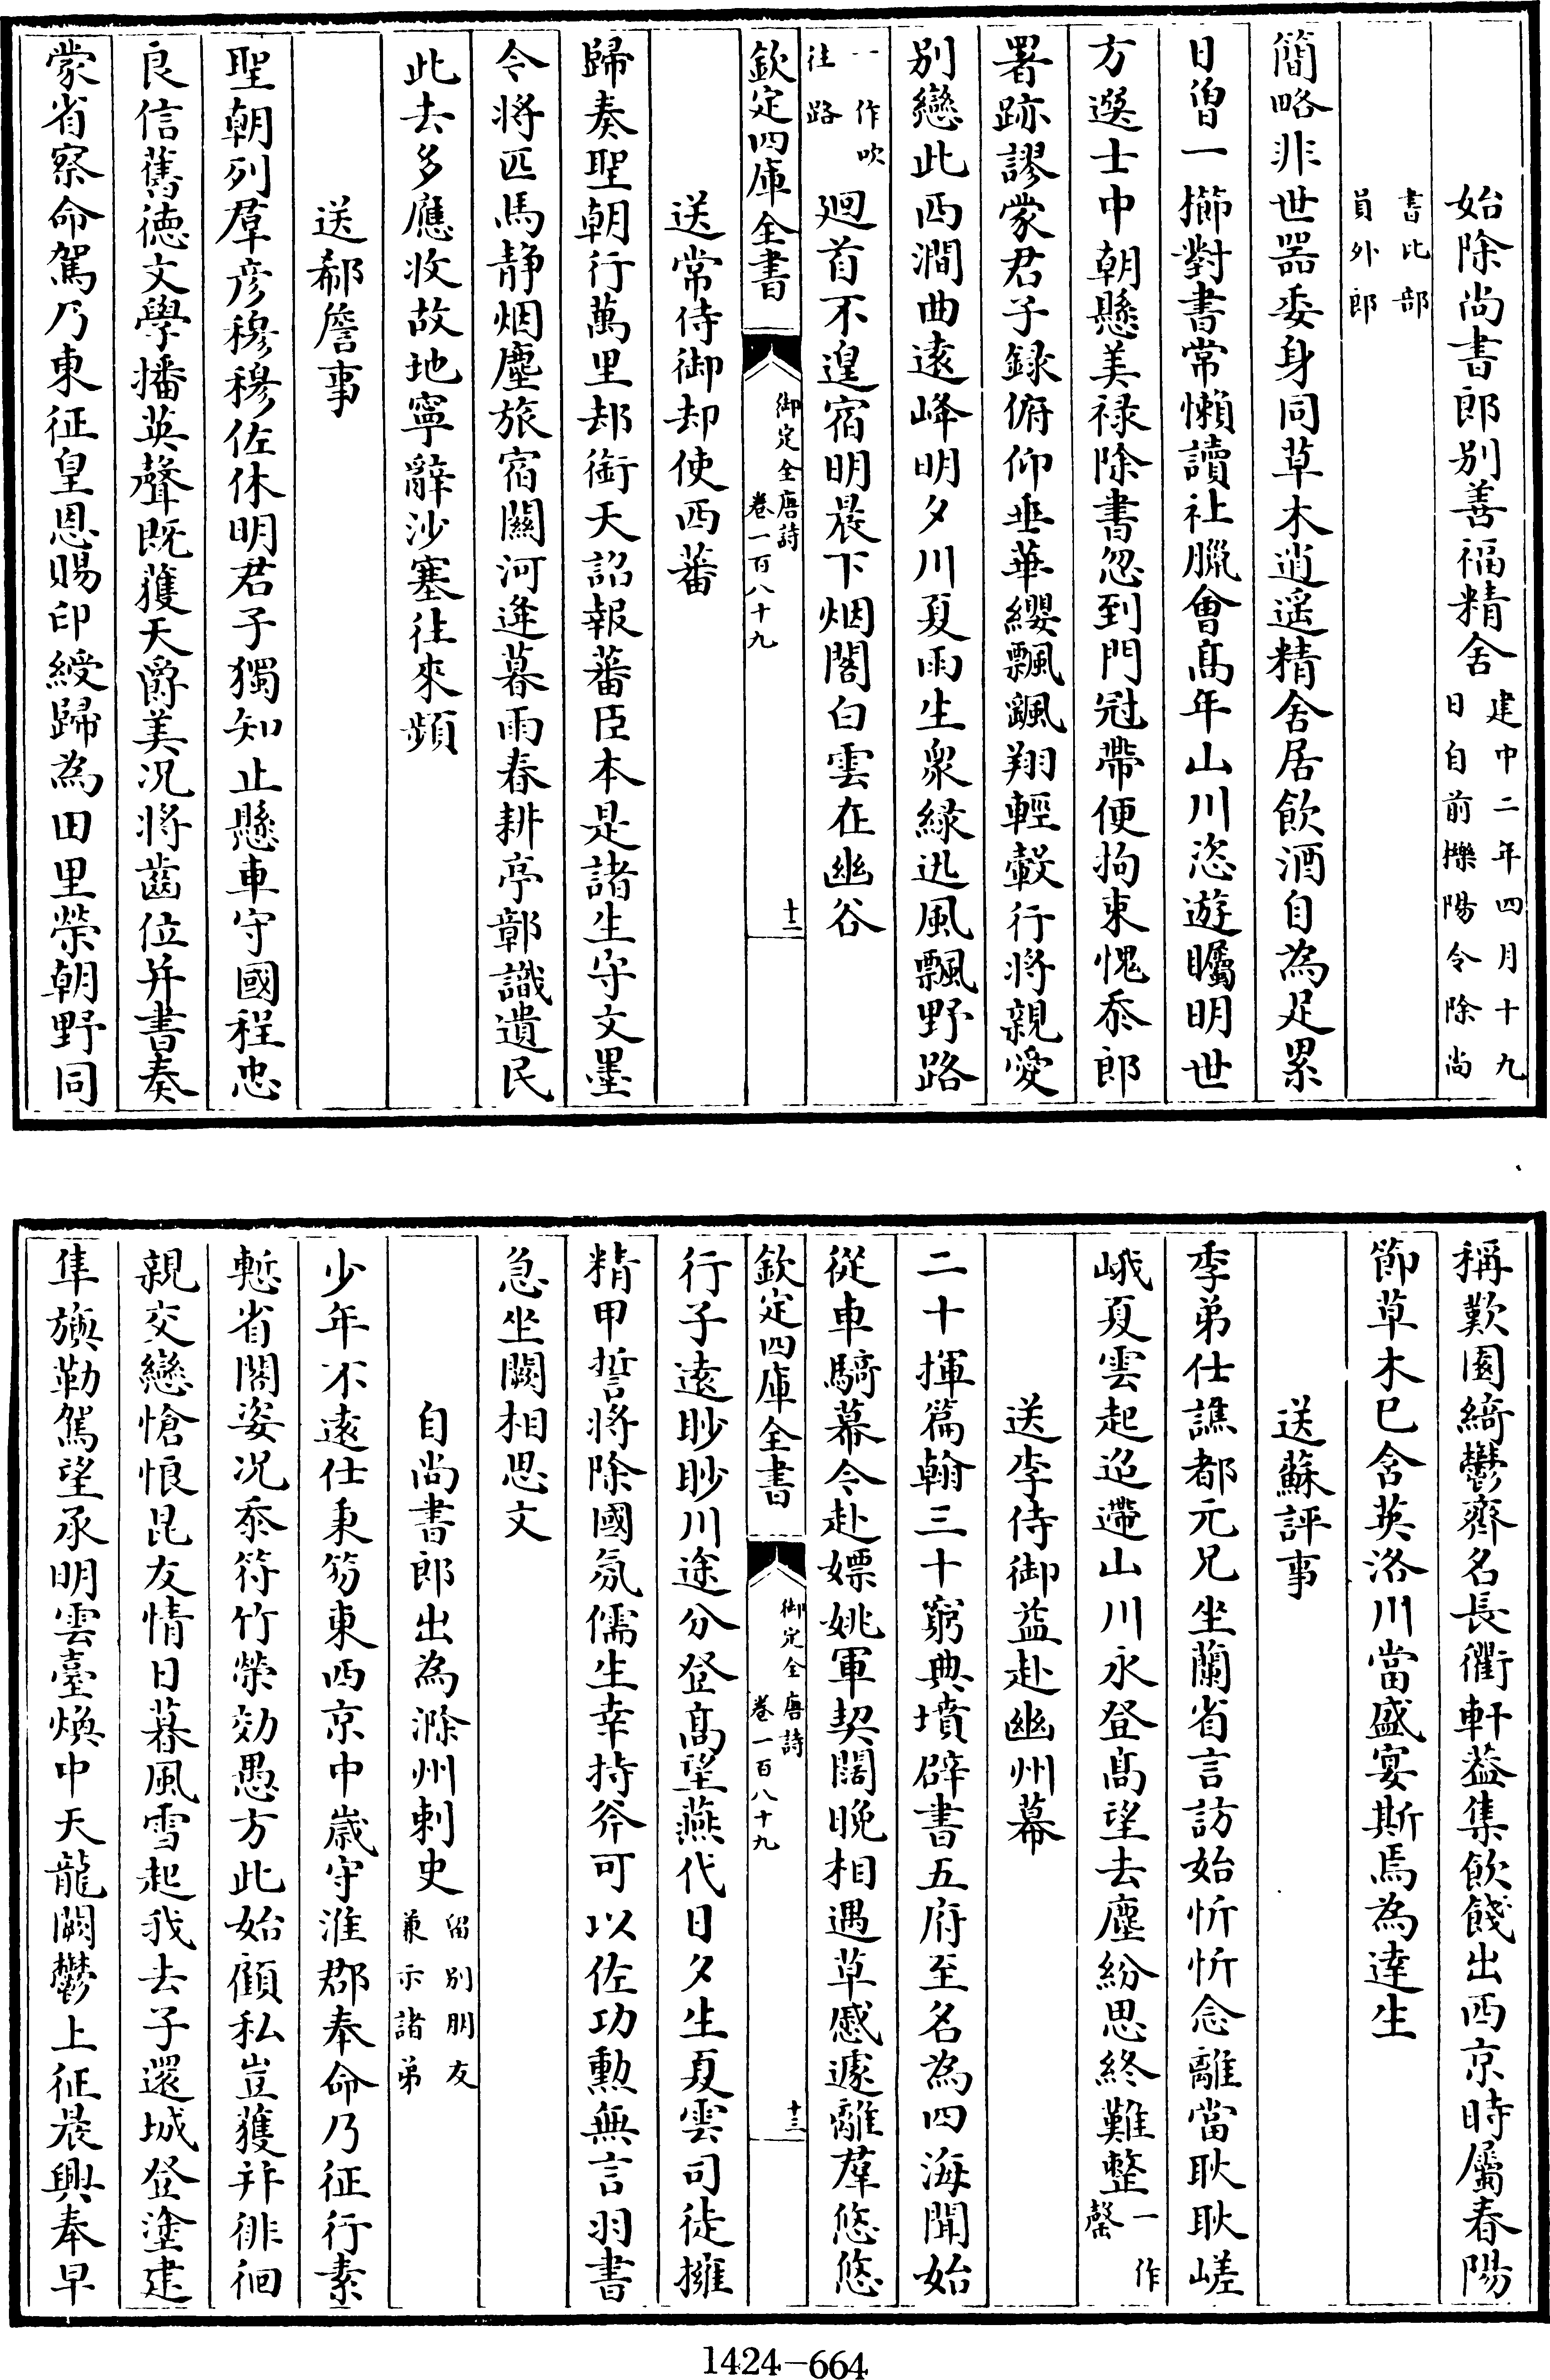 始除尚書郎别善福精舍建中二年四月十九日自前擽陽令除尚
書比部員外郎
簡略非世器委身同草木逍遥精舍居飲酒自為足累
日曽一櫛對書常懶讀社臘會髙年山川恣遊矚明世
方選士中朝懸美禄除書忽到門冠帶便拘束愧忝郎
署跡謬蒙君子録俯仰垂華纓飄颻翔輕轂行將親愛
别戀此西澗曲逺峰明夕川夏雨生衆緑迅風飄野路
一作吹往路廻首不遑宿明晨下烟閣白雲在幽谷
欽定四庫全書 御定全唐詩 卷一百八十九 十二
送常侍御却使西蕃
歸奏聖朝行萬里却銜天詔報蕃臣本是諸生守文墨
今將匹馬静烟塵旅宿關河逢暮雨春耕亭鄣識遺民
此去多應收故地寧辭沙塞往來頻
送郗詹事
聖朝列羣彦穆穆佐休明君子獨知止懸車守國程忠
良信舊徳文學播英聲既獲天爵美况將齒位并書奏
蒙省察命駕乃東征皇恩賜印綬歸為田里榮朝野同
稱歎園綺鬱齊名長衢軒葢集飲餞出西京時屬春陽
節草木已含英洛川當盛宴斯焉為達生
送蘇評事
季弟仕譙都元兄坐蘭省言訪始忻忻念離當耿耿嵯
峨夏雲起迢遰山川永登髙望去塵紛思終難整一作罄
送李侍御益赴幽州幕
二十揮篇翰三十窮典墳辟書五府至名為四海聞始
從車騎幕今赴嫖姚軍契闊晚相遇草慼遽離羣悠悠
欽定四庫全書 御定全唐詩 卷一百八十九 十三
行子逺眇眇川途分登髙望燕代日夕生夏雲司徒擁
精甲誓將除國氛儒生幸持斧可以佐功勲無言羽書
急坐闕相思文
自尚書郎出為滁州刺史留别朋友兼示諸弟
少年不逺仕秉笏東西京中嵗守淮郡奉命乃征行素
慙省閣姿况忝符竹榮効愚方此始顧私豈獲并徘徊
親交戀愴悢昆友情日暮風雪起我去子還城登塗建
隼旟勒駕望承明雲臺煥中天龍闕鬱上征晨興奉早
1424-664